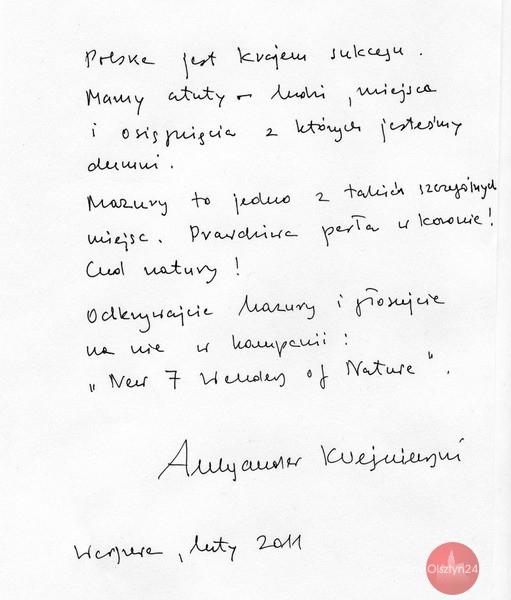 Polska jest krajem sukcesu.
Mamy atuty – ludzi, miejsca
i osiągnięcia z których jesteśmy
dumni.
Mazury to jedno z takich szczególnych
miejsc. Prawdziwa perła w koronie!
Cud natury!
Odkrywajcie Mazury i głosujcie
na nie w kampanii:
„New 7 Wonders of Nature”.
Aleksander Kwaśniewski
Warszawa, luty 2011
Olsztyn24